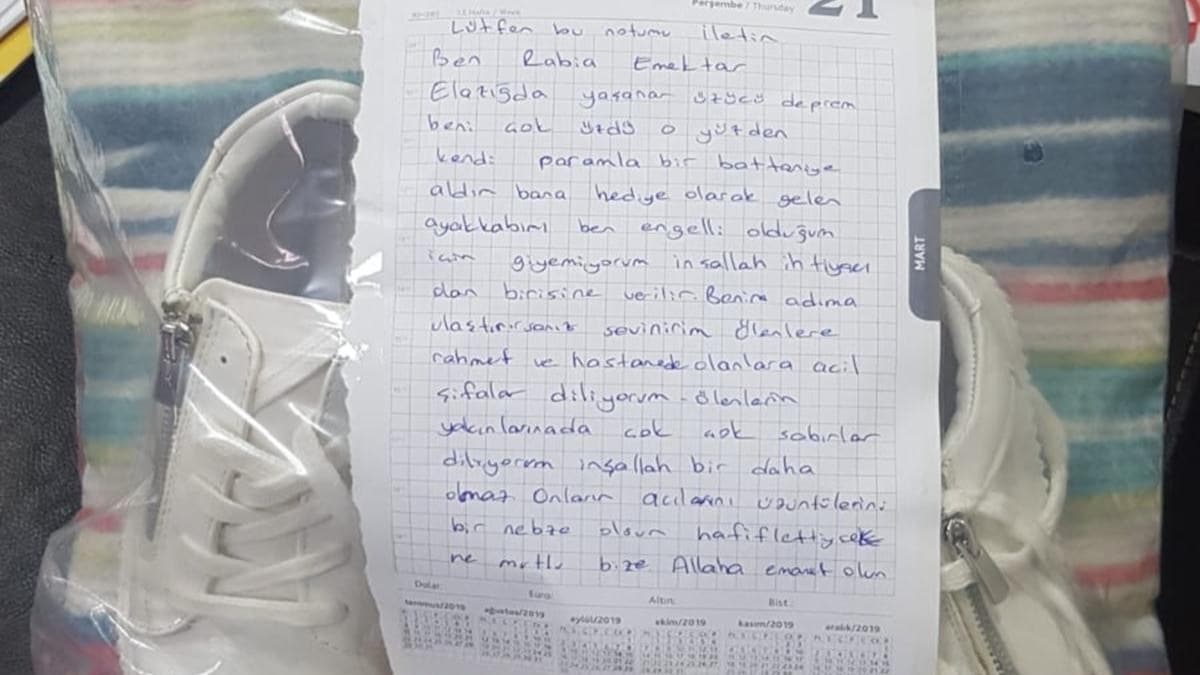 12.Hafta / Week
Perşembe / Thursday
21
Lütfen bu notumu iletin
Ben Rabia Emektar
Elazığda yaşanan üzücü deprem
beni çok üzdü o yüzden
kendi paramla bir battaniye
aldım bana hediye olarak gelen
ayakkabımı ben engelli olduğum
için giyemiyorum insallah ihtiyacı
olan birisine verilir. Benim adıma
ulaştırırsanız sevinirim ölenlere
rahmet ve hastanede olanlara acil
şifalar diliyorum - ölenlerin
yakınlarınada çok çok sabırlar
diliyorum inşallah bir daha
olmaz Onların acılarını üzüntülerini
bir nebze olsun hafiflettiysek
ne mutlu bize Allaha emanet olun
MART
Dolar: Euro: Altın: Bist:
temmuz/2019 ağustos/2019 eylül/2019 ekim/2019 kasım/2019 aralık/2019